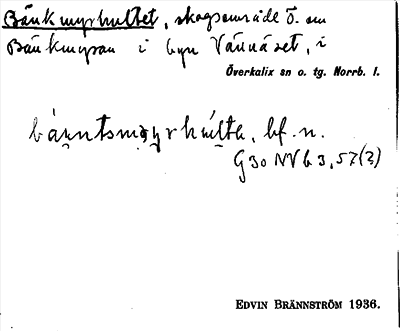 Bänkmyrhultet, skogsområde ö. om
Bänkmyran i byn Vännäset, i
Överkalix sn o. tg. Norrb. l.
bäṇntsmyrhúlta, bf. n.
G30 NV b 3,57(?)
EDVIN BRÄNNSTRÖM 1936.